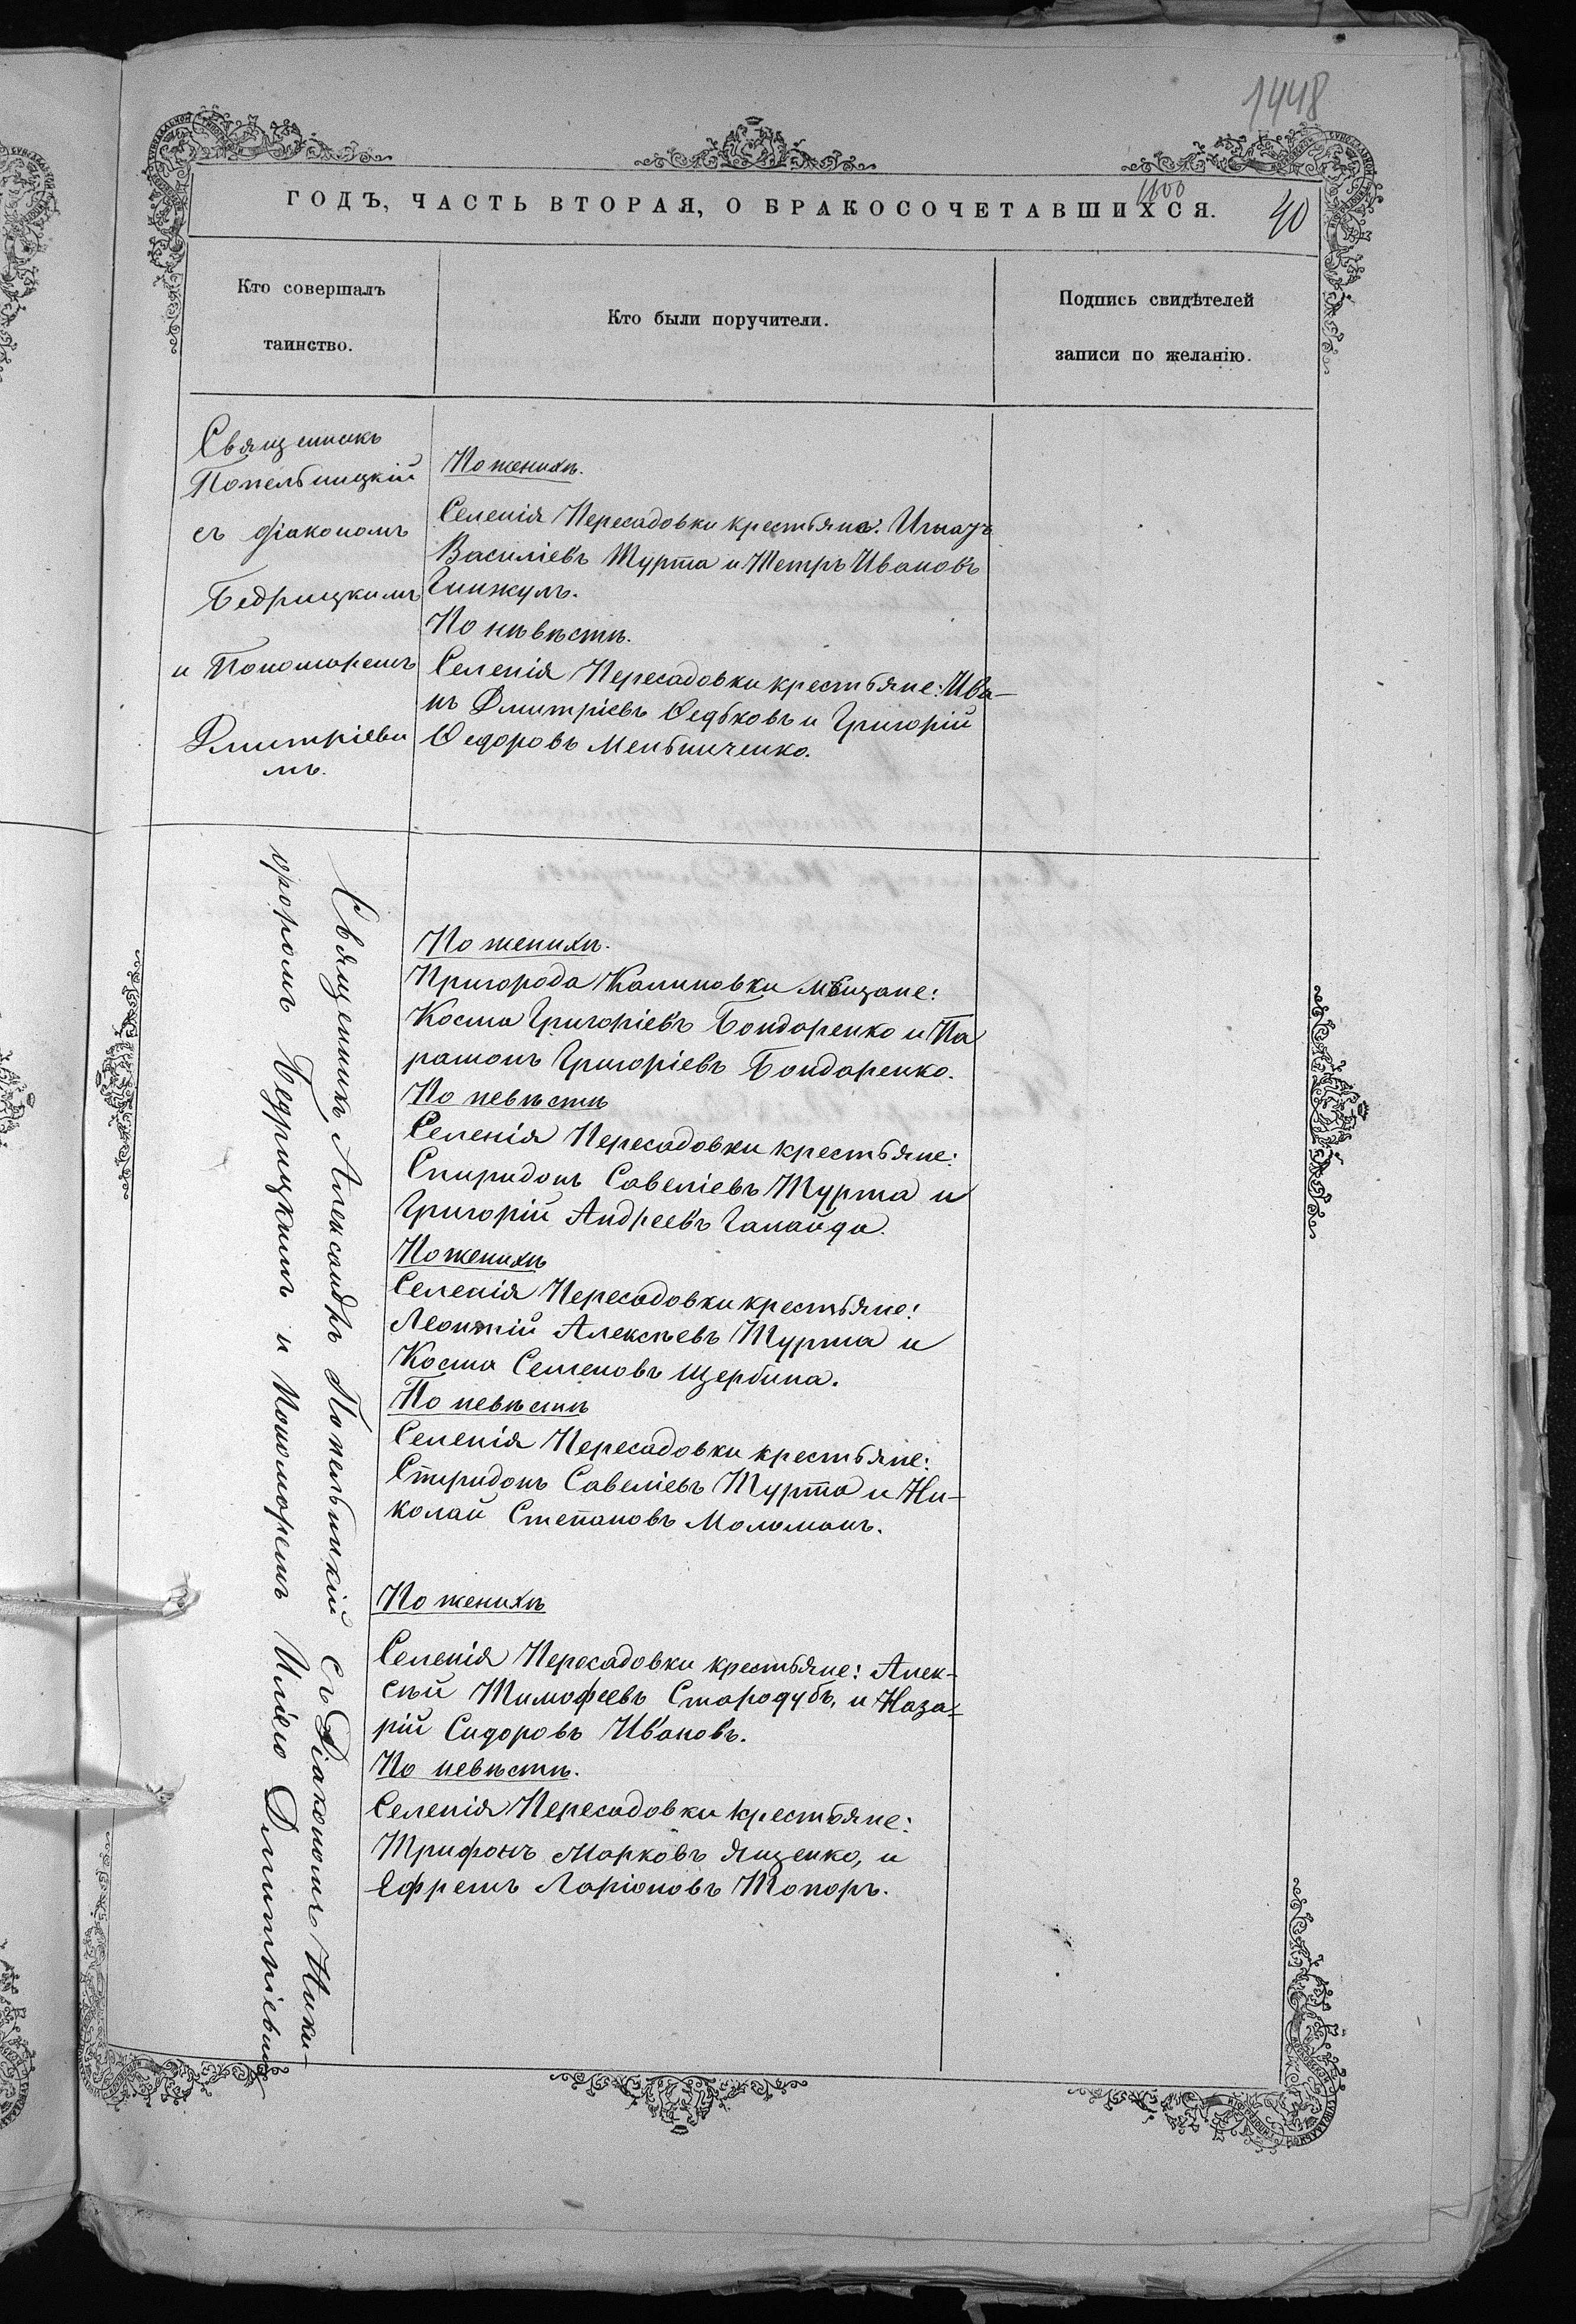 1448
ГОДЪ, ЧАСТЬ ВТОРАЯ, О БРАКОСОЧЕТАВШИХСЯ.
1100
40
Кто совершалъ
таинство.
Кто были поручители.
Подпись свидѣтелей
записи по желанію.
Священникъ
Попельницкій
съ діакономъ
Бедрицкимъ
и Пономаремъ
Дмитріевы
мъ.
По женихѣ.
Селенія Пересадовки крестьяне: Игнатъ
Василіевъ Турта и Петръ Ивановъ
Гинжулъ.
По нѣвѣстѣ.
Селенія Пересадовки крестьяне: Ива-
нъ Дмитріевъ Ѳедьковъ и Григорій
Ѳедоровъ Мельниченко.
Священникъ Александръ Попельницкій съ Діакономъ Ники-
форомъ Бедрицкимъ и Пономаремъ Иліею Дмитріевымъ
По женихѣ.
Пригорода Калиновки мѣщане:
Косма Григоріевъ Бондаренко и Па
рамонъ Григоріевъ Бондаренко.
По невѣстѣ
Селенія Пересадовки крестьяне:
Спиридонъ Савеліевъ Турта и
Григорій Андреевъ Галайда.
По женихѣ
Селенія Пересадовки крестьяне:
Леонтій Алексѣевъ Турта и
Косма Семеновъ Щербина.
По невѣстѣ
Селенія Пересадовки крестьяне:
Спиридонъ Савеліевъ Турта и Ни-
колай Степановъ Моломанъ.
По женихѣ
Селенія Пересадовки крестьяне: Алек-
сѣй Тимофеевъ Стародубъ, и Наза-
рій Сидоровъ Ивановъ.
По невѣстѣ.
Селенія Пересадовки крестьяне:
Трифонъ Марковъ Ященко, и
Ефремъ Ларіоновъ Топоръ.